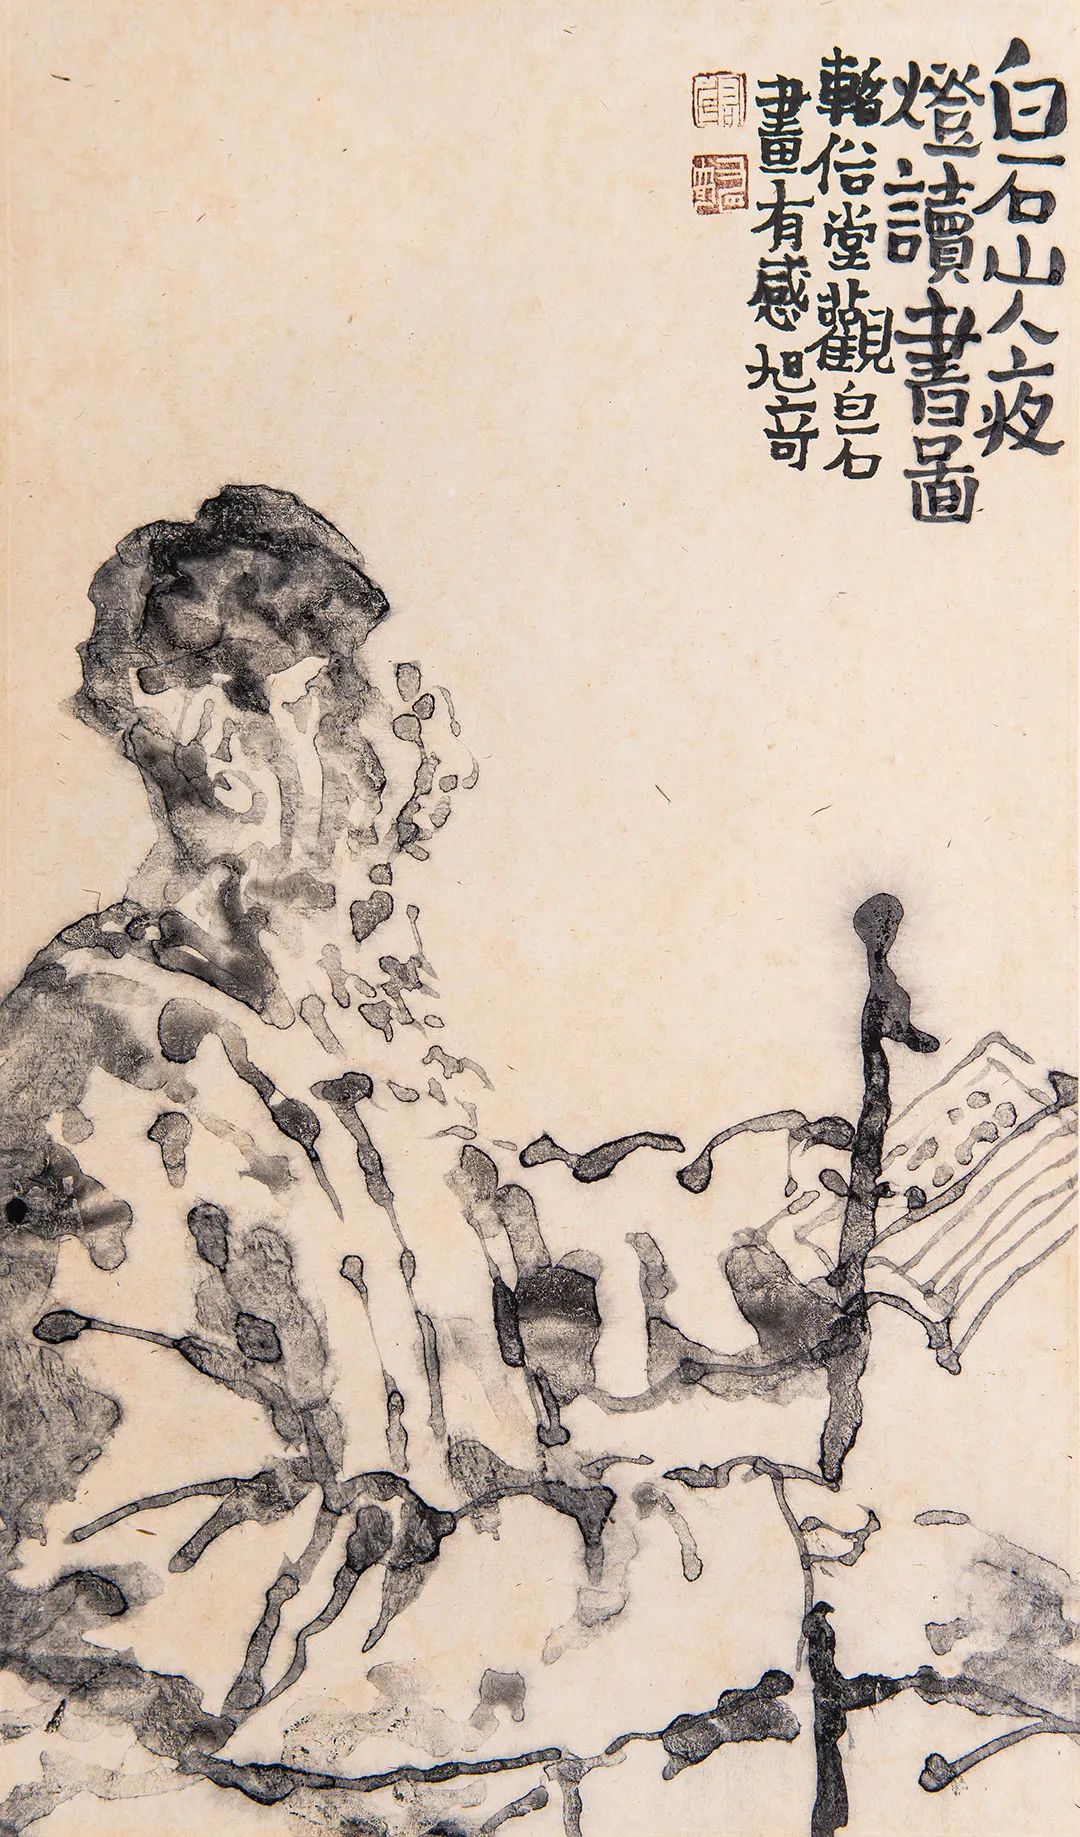 白石山人夜
燈讀書圖
暫俗堂觀白石
畫有感 旭竒